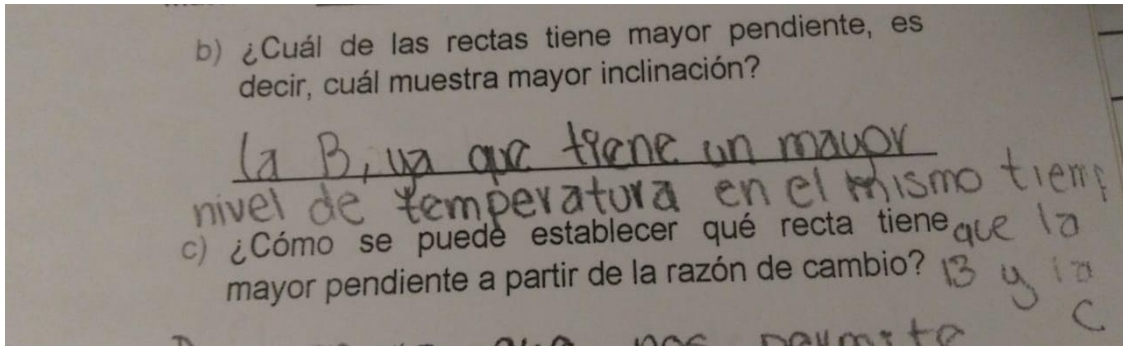 b) ¿Cuál de las rectas tiene mayor pendiente, es
decir, cuál muestra mayor inclinación?
la B, ya que tiene un mayor
nivel de temperatura en el mismo tiemp
que la
B y la
C
c) ¿Cómo se puede establecer qué recta tiene
mayor pendiente a partir de la razón de cambio?
que nos permite